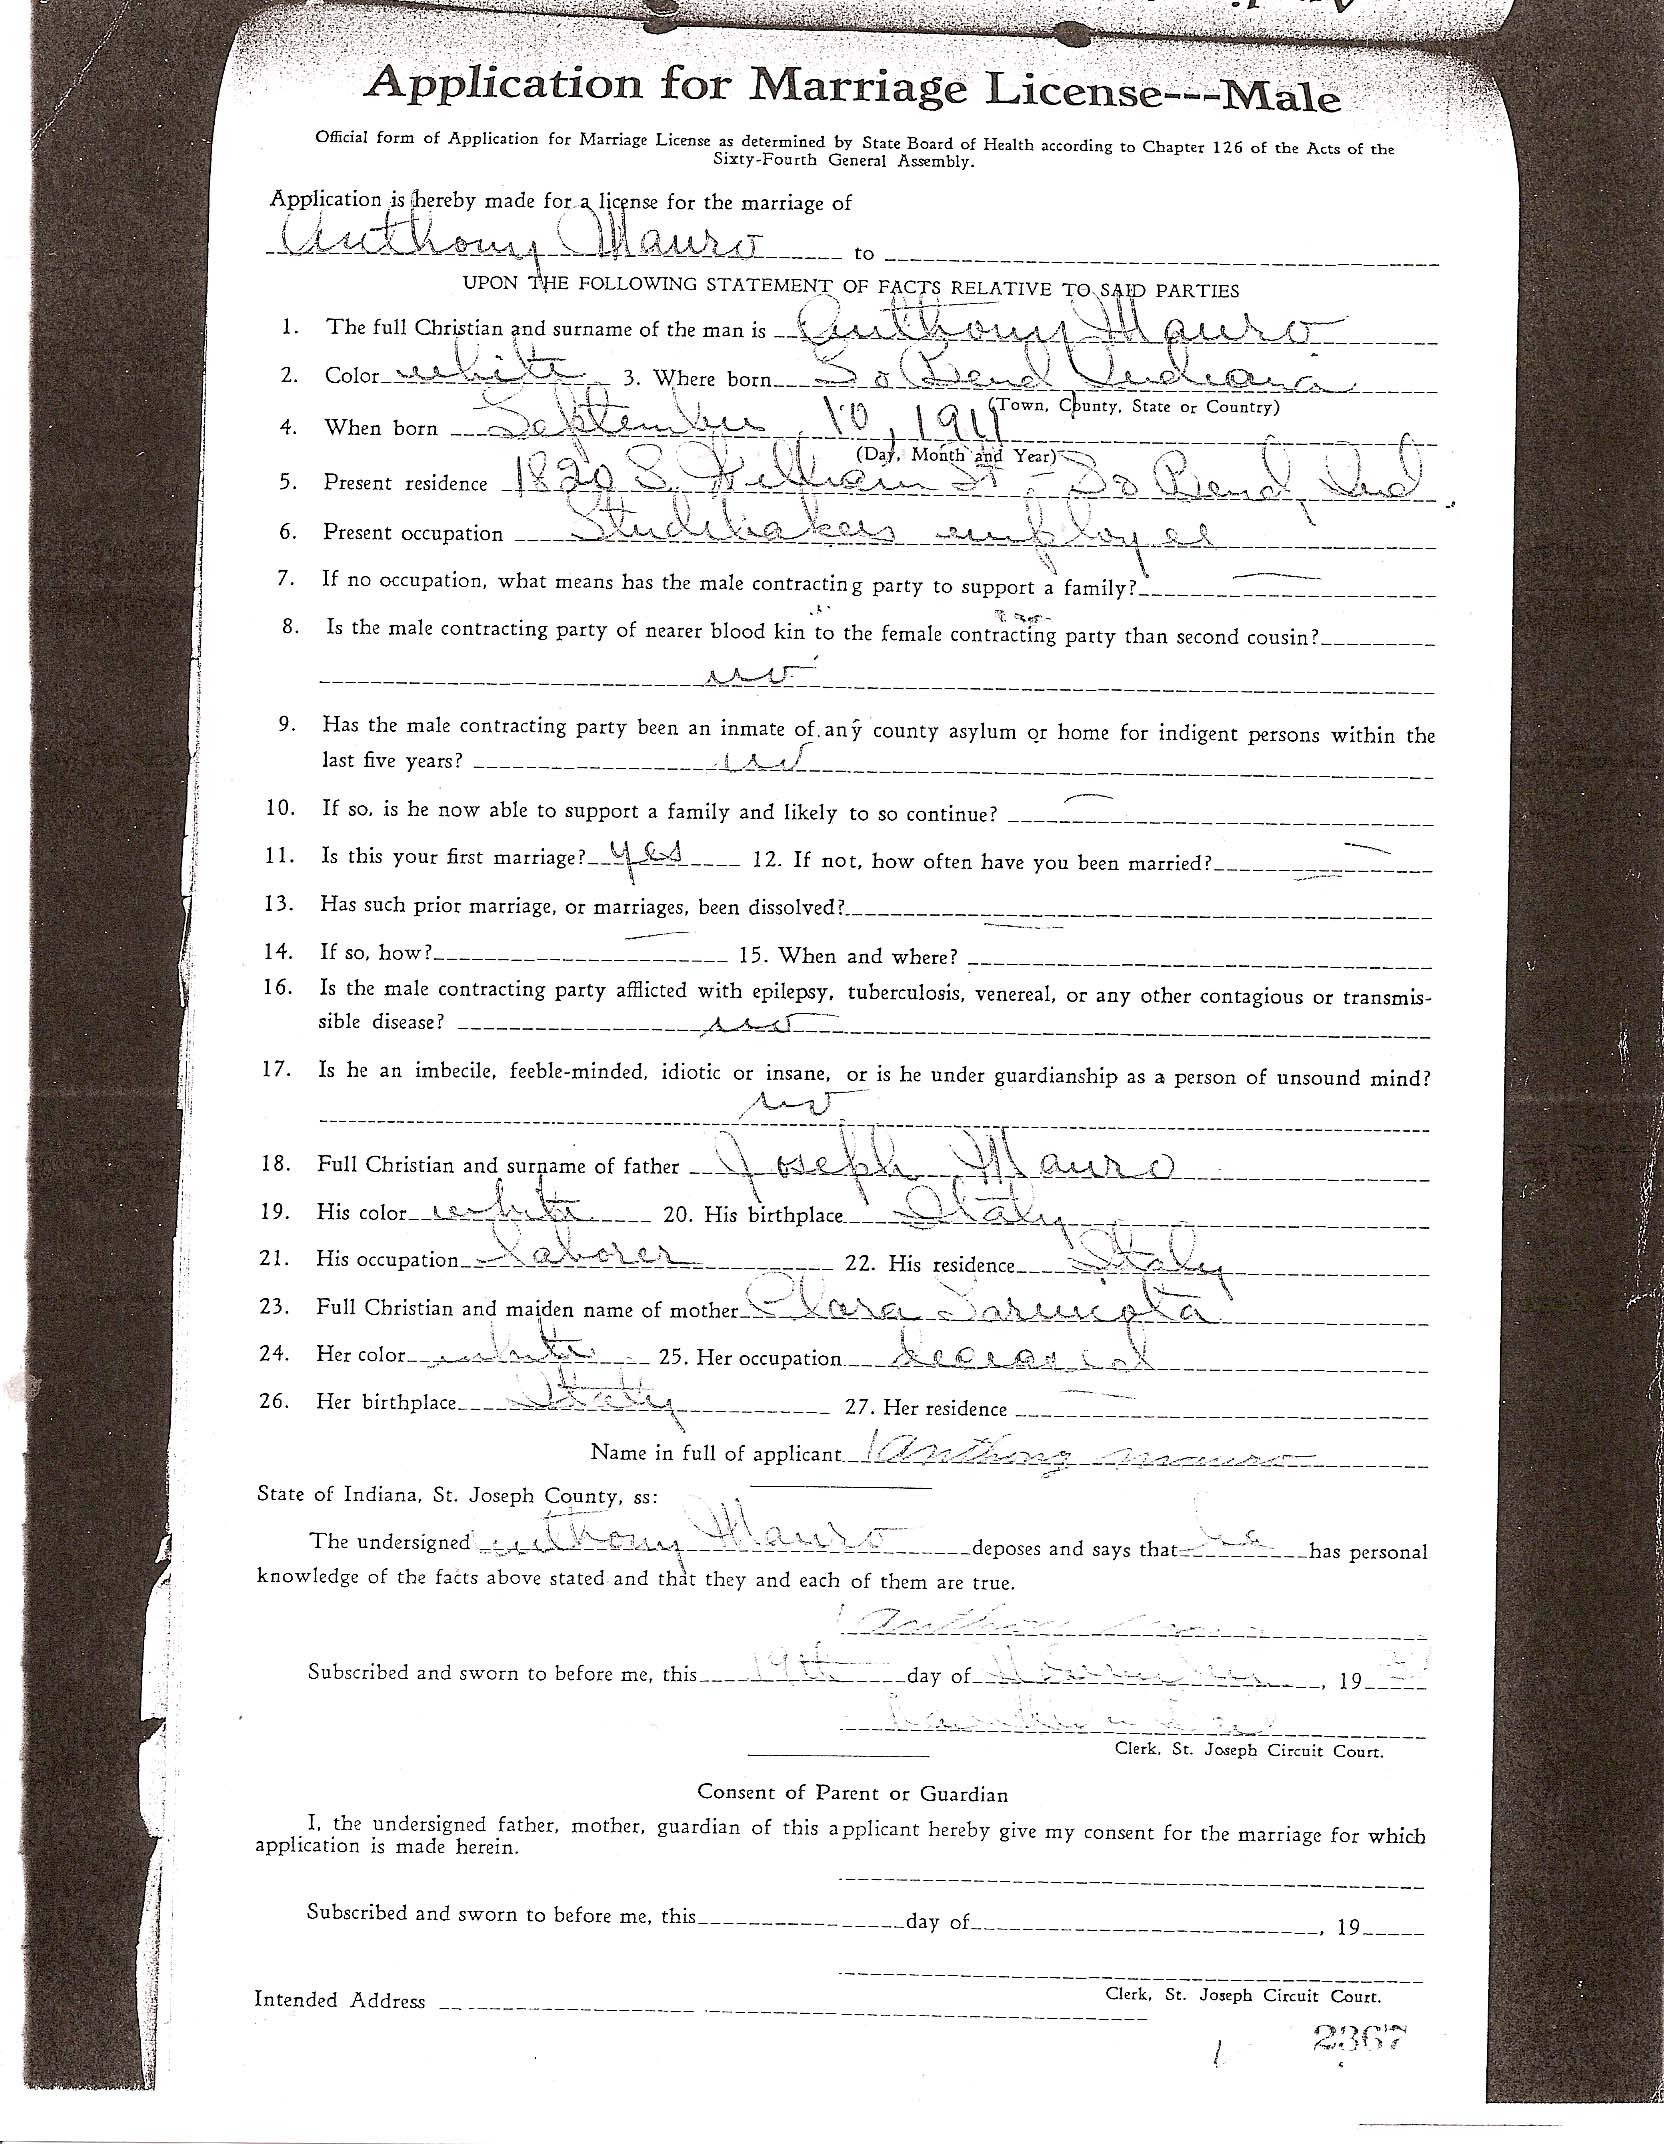 Application for Marriage License---Male
Official form of Application for Marriage License as determined by State Board of Health according to Chapter 126 of the Acts of the
Sixty-Fourth General Assembly.
Application is hereby made for a license for the marriage of
Anthony Mauro to
UPON THE FOLLOWING STATEMENT OF FACTS RELATIVE TO SAID PARTIES
1. The full Christian and surname of the man is Anthony Mauro
2. Color white 3. Where born So Bend Indiana
(Town, County, State or Country)
4. When born September 10, 1911
(Day, Month and Year)
5. Present residence 1820 S. William St - So Bend, Ind.
6. Present occupation Studebakers employee
7. If no occupation, what means has the male contracting party to support a family?
8. Is the male contracting party of nearer blood kin to the female contracting party than second cousin?
no
9. Has the male contracting party been an inmate of any county asylum or home for indigent persons within the
last five years? no
10. If so, is he now able to support a family and likely to so continue?
11. Is this your first marriage? yes 12. If not, how often have you been married?
13. Has such prior marriage, or marriages, been dissolved?
14. If so, how? 15. When and where?
16. Is the male contracting party afflicted with epilepsy, tuberculosis, venereal, or any other contagious or transmis-
sible disease? no
17. Is he an imbecile, feeble-minded, idiotic or insane, or is he under guardianship as a person of unsound mind?
no
18. Full Christian and surname of father Joseph Mauro
19. His color white 20. His birthplace Italy
21. His occupation laborer 22. His residence Italy
23. Full Christian and maiden name of mother Clara
24. Her color white 25. Her occupation deceased
26. Her birthplace Italy 27. Her residence
Name in full of applicant Anthony Mauro
State of Indiana, St. Joseph County, ss:
The undersigned Anthony Mauro deposes and says that he has personal
knowledge of the facts above stated and that they and each of them are true.
Anthony
Subscribed and sworn to before me, this 19th day of November, 19
Clerk, St. Joseph Circuit Court.
Consent of Parent or Guardian
I, the undersigned father, mother, guardian of this applicant hereby give my consent for the marriage for which
application is made herein.
Subscribed and sworn to before me, this day of , 19
Clerk, St. Joseph Circuit Court.
Intended Address
2367